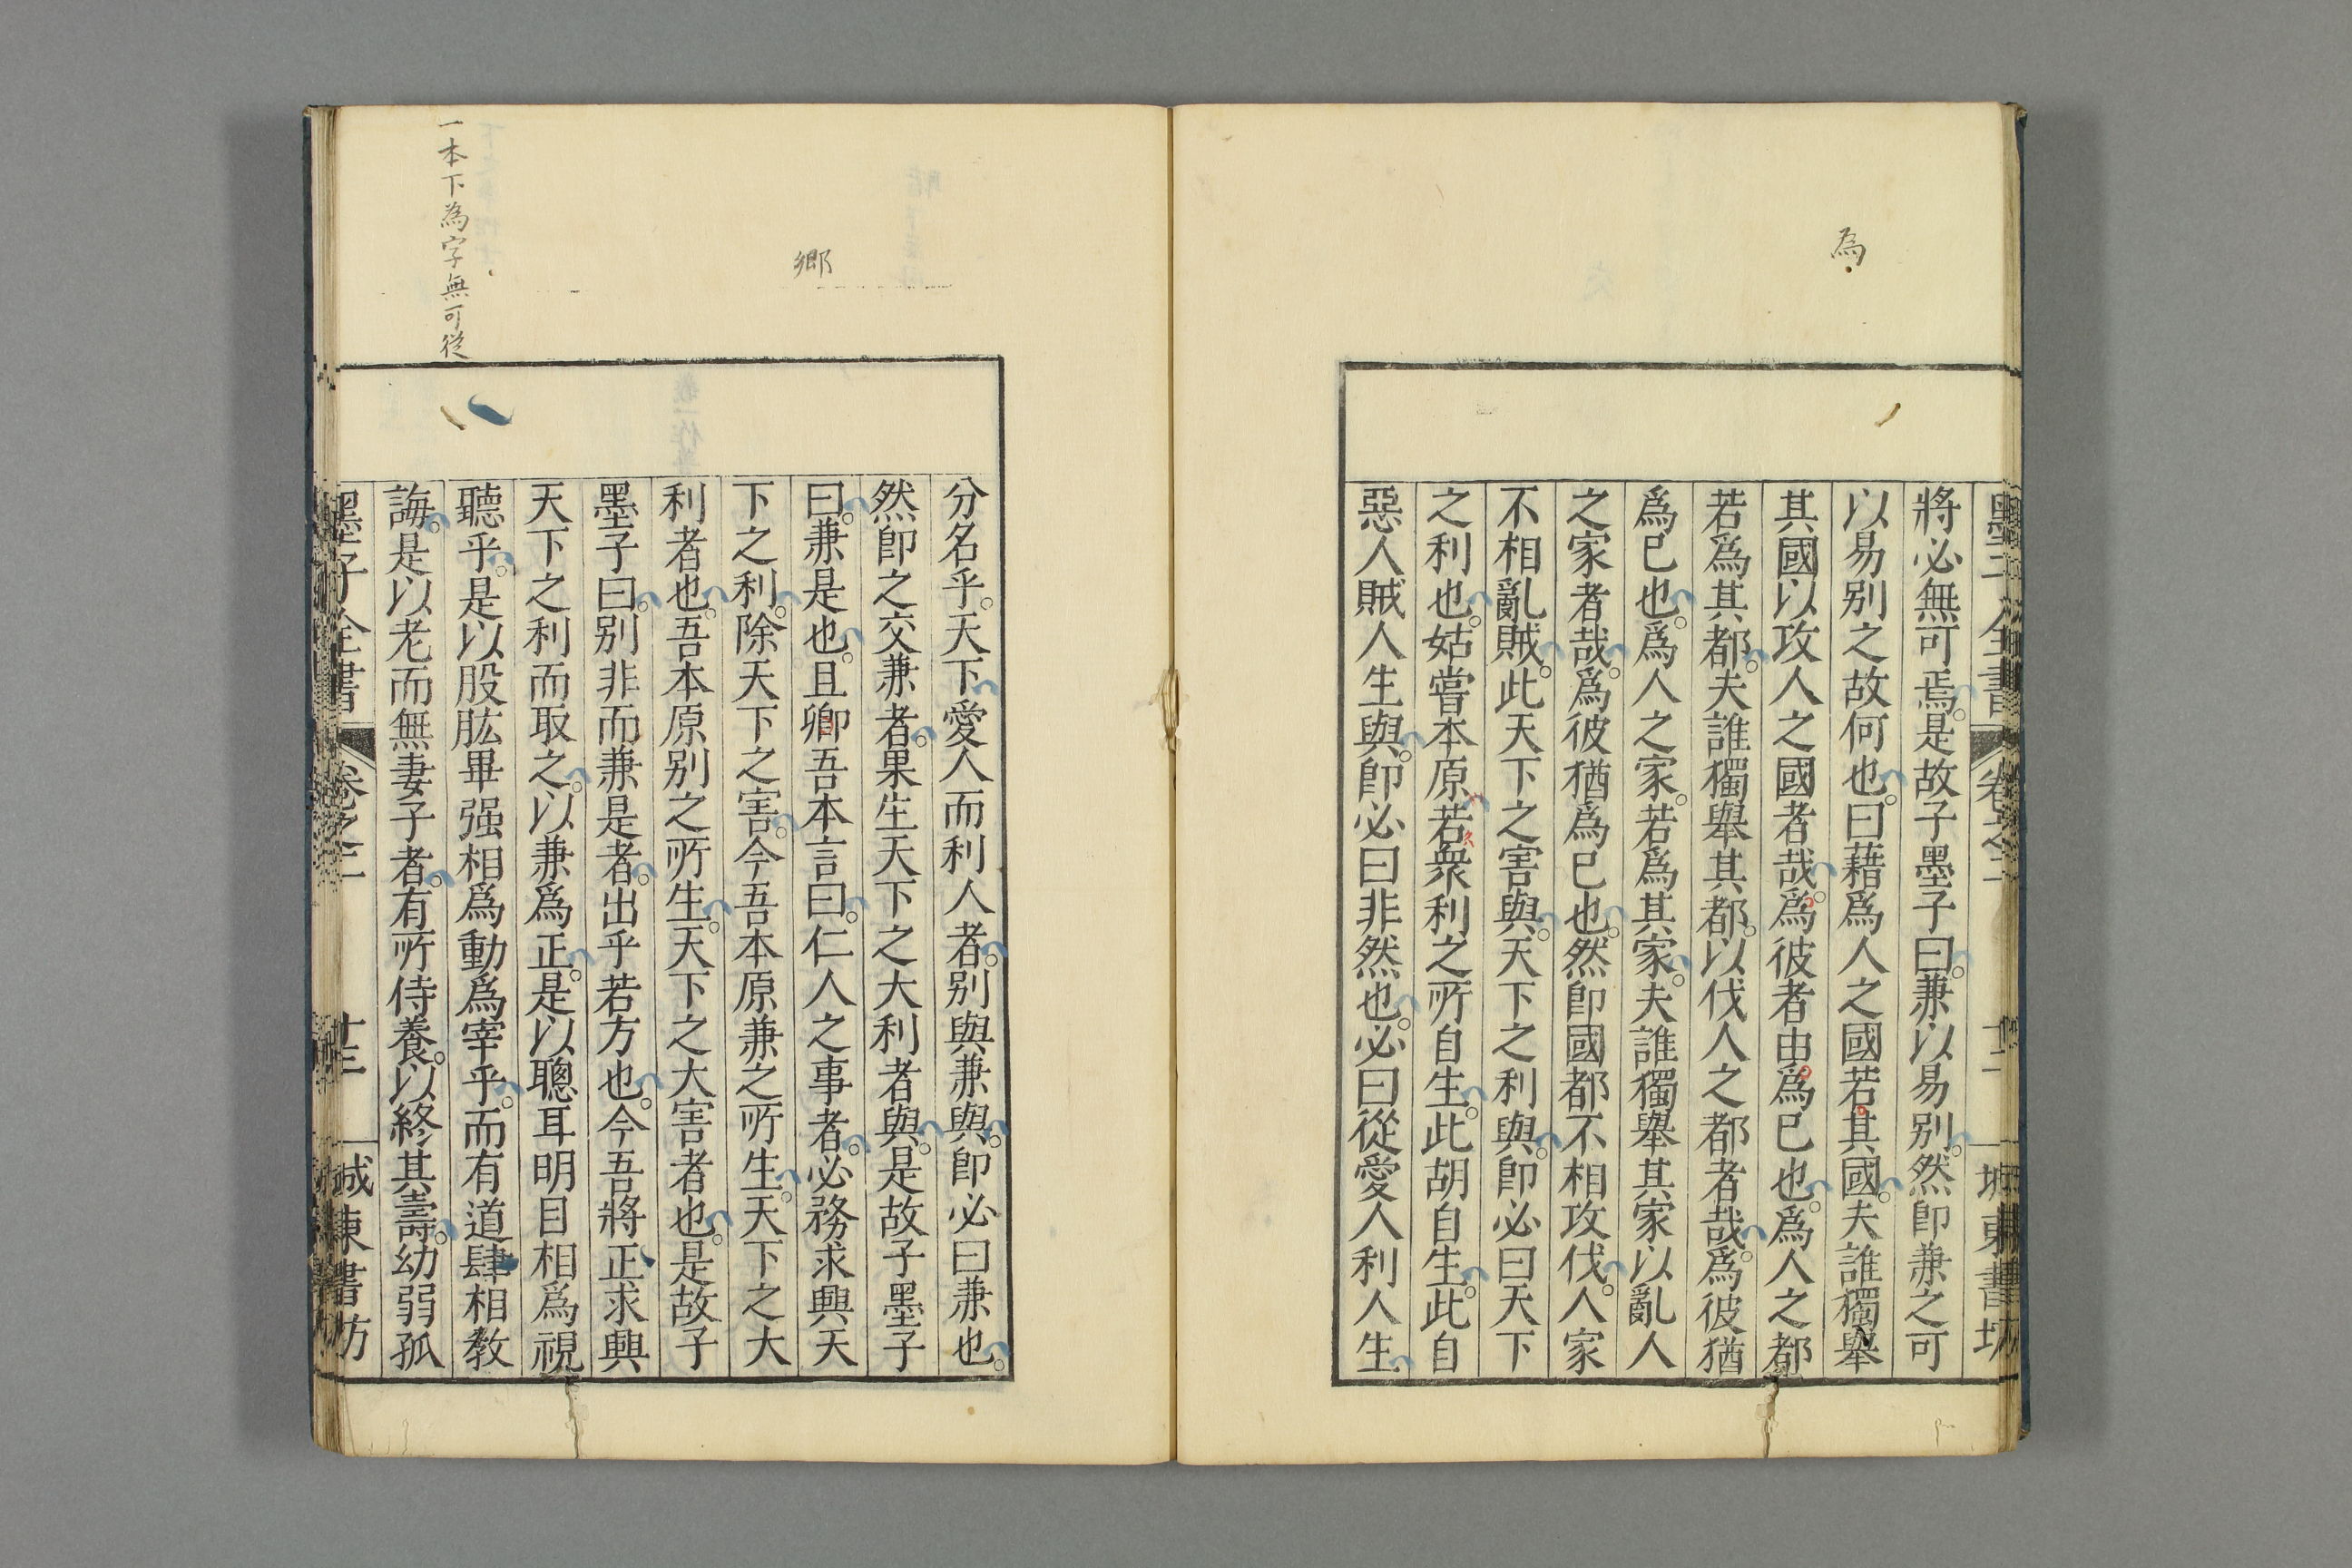 為
墨子全書 卷之二 十二 堀東書坊
將必無可焉。是故子墨子曰。兼以易別。然卽兼之可
以易別之故何也。曰藉爲人之國若其國。夫誰獨舉
其國以攻人之國者哉。爲彼者由爲已也。爲人之都
若爲其都。夫誰獨舉其都。以伐人之都者哉。爲彼猶
爲已也。爲人之家。若爲其家。夫誰獨舉其家以亂人
之家者哉。爲彼猶爲已也。然卽國都不相攻伐。人家
不相亂賊。此天下之害與。天下之利與。卽必曰天下
之利也。姑嘗本原若衆利之所自生。此胡自生。此自
惡人賊人生與。卽必曰非然也。必曰從愛人利人生
鄉
一本下為字無可從
分名乎。天下愛人而利人者。別與兼與。卽必曰兼也。
然卽之交兼者。果生天下之大利者與。是故子墨子
曰。兼是也。且卿吾本言曰。仁人之事者。必務求興天
下之利。除天下之害。今吾本原兼之所生。天下之大
利者也。吾本原別之所生。天下之大害者也。是故子
墨子曰。別非而兼是者。出乎若方也。今吾將正求興
天下之利而取之。以兼爲正。是以聰耳明目相爲視
聽乎。是以股肱畢强相爲動爲宰乎。而有道肆相教
誨。是以老而無妻子者。有所侍養。以終其壽。幼弱孤
墨子全書 卷之二 十三 城東書坊